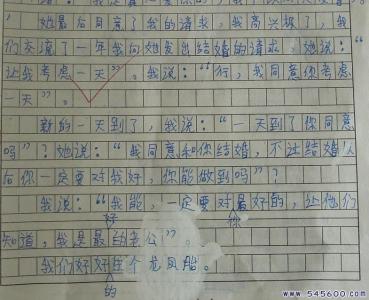 她最后同意了我的请求，我高兴极了，我
们交流了一年我向她发出结婚的请求，她说：“
让我考虑一天”。我说：“行，我同意你考虑
一天”。
新的一天到了，我说：“一天到了你同意
吗”？她说：“我同意和你结婚，不过结婚以
后你一定要对我好，你能做到吗”？
我说：“我能，一定要对最好的，让他们
好 你
知道，我是最 的老公”。
我们好好 个龙凤胎。
的
www.545600.com